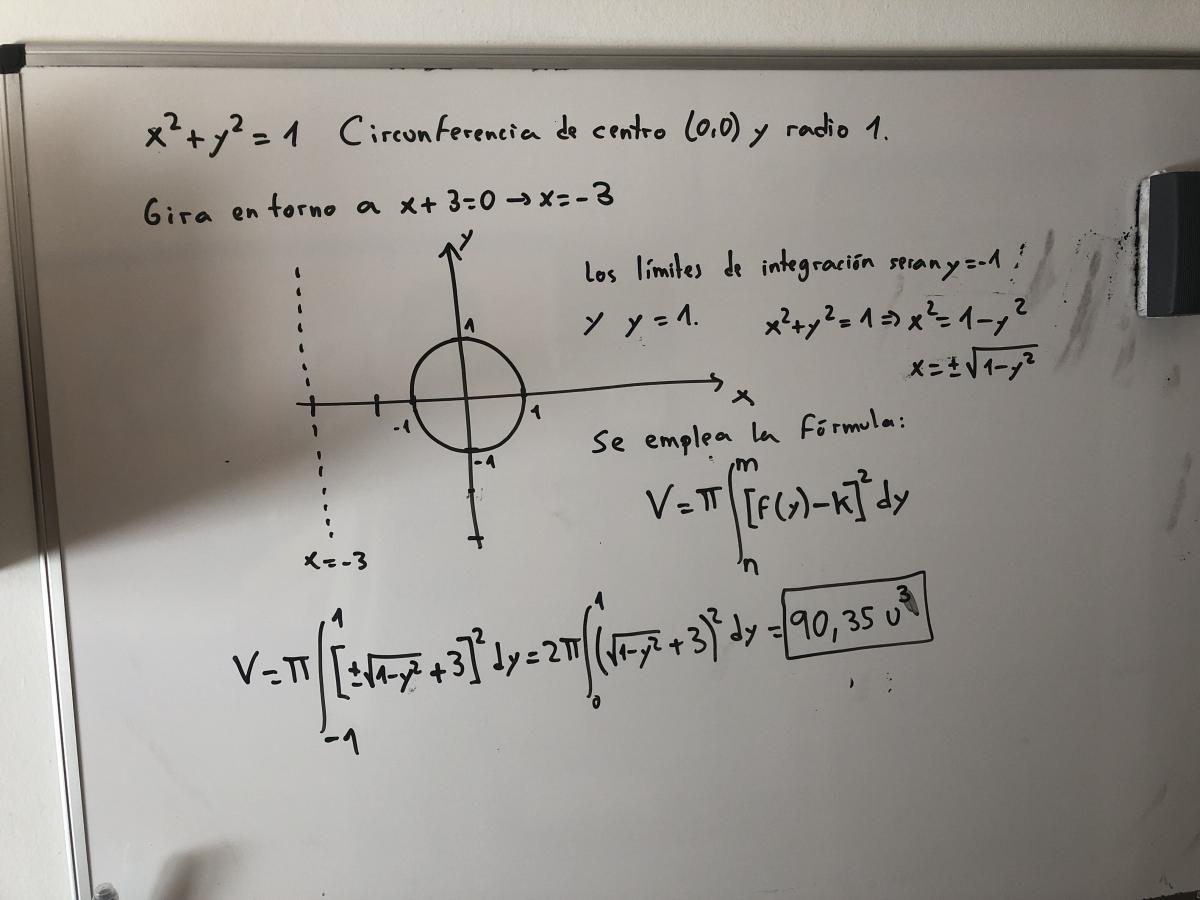 x²+y²=1 Circunferencia de centro (0,0) y radio 1.
Gira en torno a x+3=0→x=-3
y
Los límites de integración seran y=-1
y y=1. x²+y²=1⇒x²=1-y²
x=±√1-y²
1
x
-1
1
-1
x=-3
Se emplea la fórmula:
V=π∫ₙᵐ[f(y)-k]²dy
V=π∫₋₁¹[±√1-y²+3]²dy=2π∫₀¹(√1-y²+3)²dy=90,35 u³